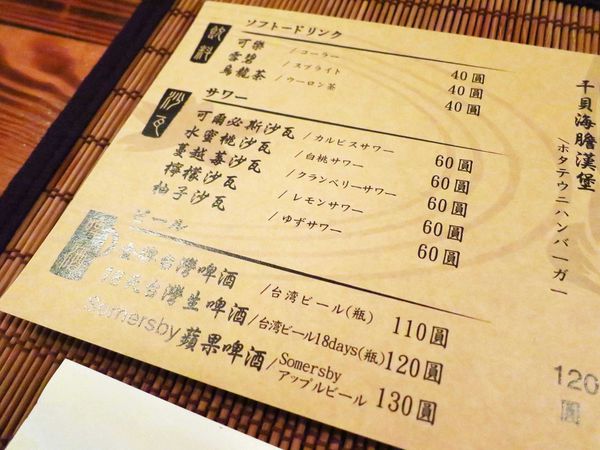 飲料
ソフトードリンク
可樂/コーラー 40圓
雪碧/スプライト 40圓
烏龍茶/ウーロン茶 40圓
沙瓦
サワー
可爾必斯沙瓦/カルピスサワー 60圓
水蜜桃沙瓦/白桃サワー 60圓
蔓越莓沙瓦/クランベリーサワー 60圓
檸檬沙瓦/レモンサワー 60圓
柚子沙瓦/ゆずサワー 60圓
啤酒
ビール
金牌台灣啤酒/台湾ビール(瓶) 110圓
18天台灣生啤酒/台湾ビール18days(瓶) 120圓
Somersby蘋果啤酒/Somersby
アップルビール 130圓
干貝海膽漢堡
/ホタテウニハンバーガー
120
圓